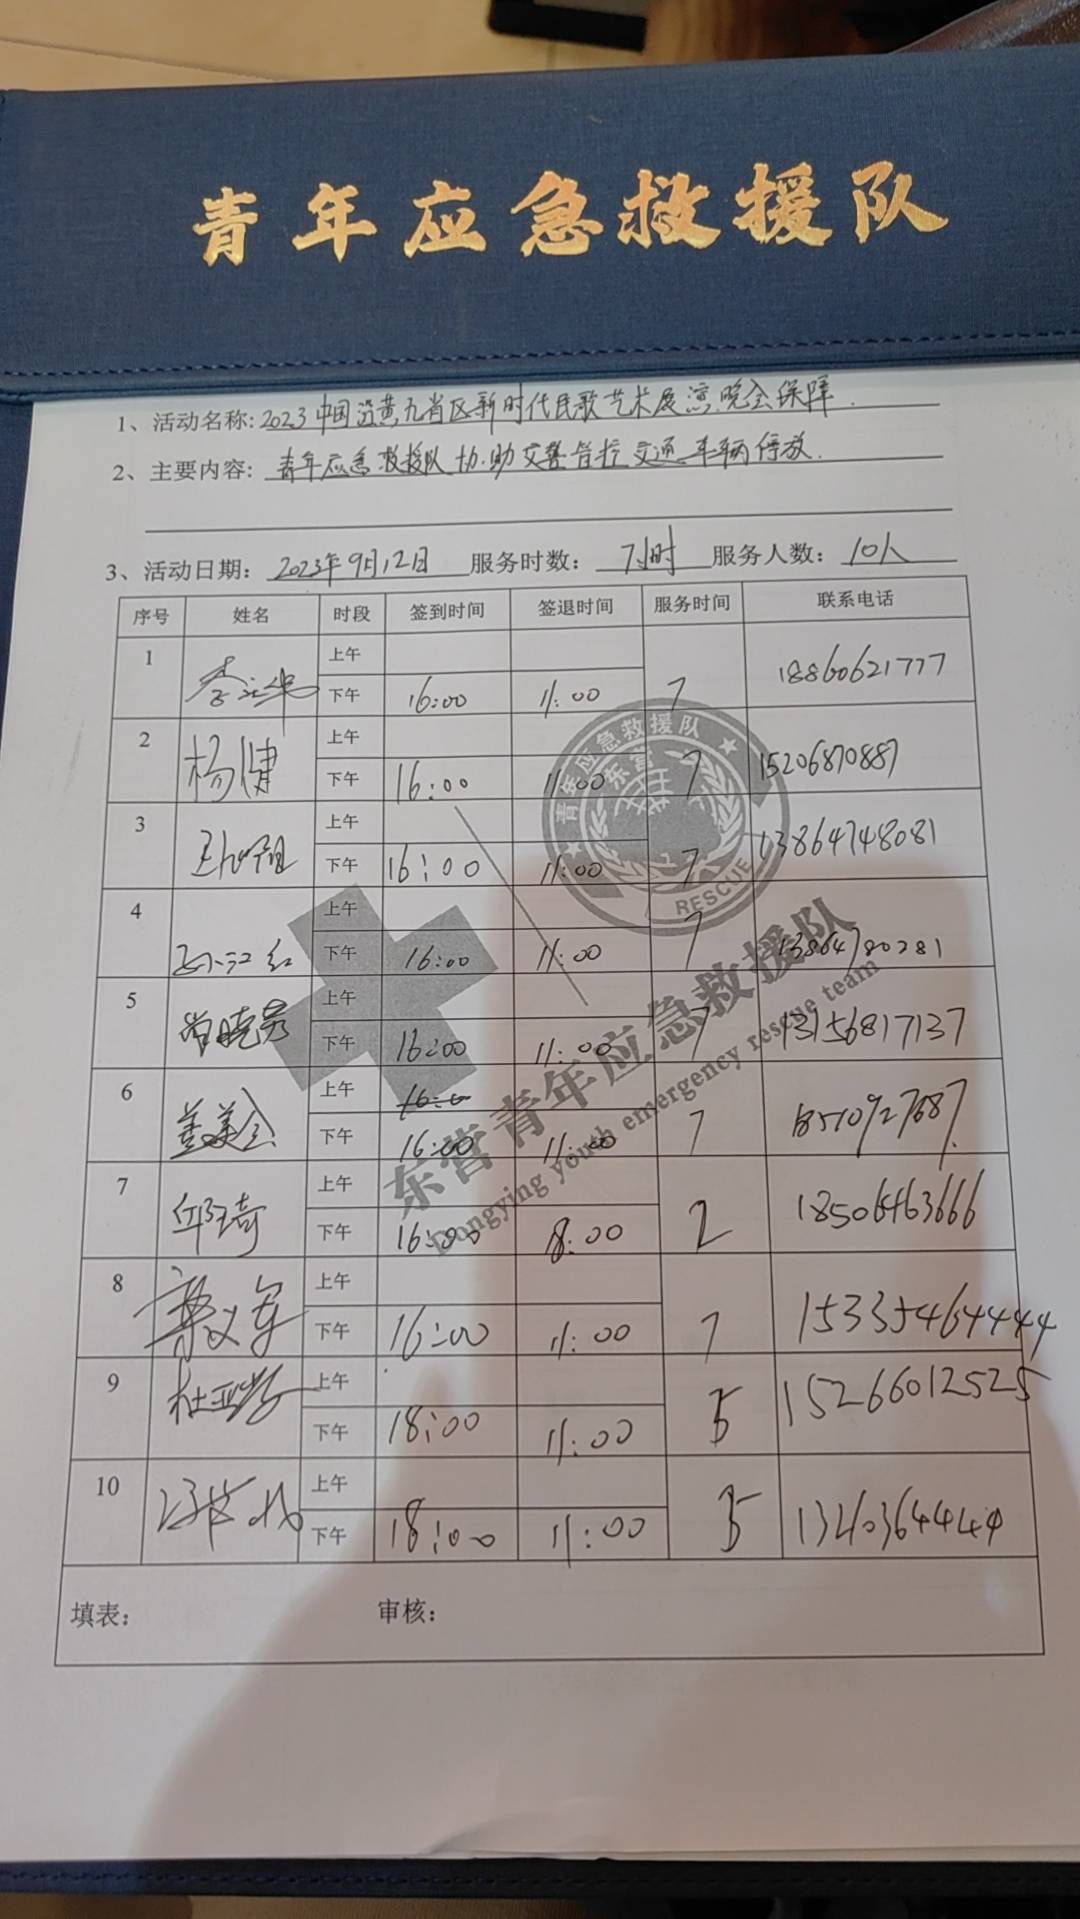 青年应急救援队
1、活动名称: 2023中国沿黄九省区新时代民歌艺术展演晚会保障.
2、主要内容: 青年应急救援队协助交警管控交通车辆停放.
3、活动日期: 2023年9月12日 服务时数: 7小时 服务人数: 10人
序号 姓名 时段 签到时间 签退时间 服务时间 联系电话
1 上午
下午 16:00 11:00 7 18860621777
2 杨健 上午
下午 16:00 11:00 7 15206870887
3 上午
下午 16:00 11:00 7 13864748081
4 上午
下午 16:00 11:00 7 13864780281
5 上午
下午 16:00 11:00 7 13156817137
6 上午 16:0
下午 16:00 11:00 7
7 上午
下午 16:00 8:00 2 18506463666
8 上午
下午 16:00 11:00 7 15335464444
9 上午
下午 18:00 11:00 5 15266012525
10 上午
下午 18:00 11:00 5
填表: 审核:
青年应急救援队
东营
RESCUE
东营青年应急救援队
Dongying youth emergency rescue team